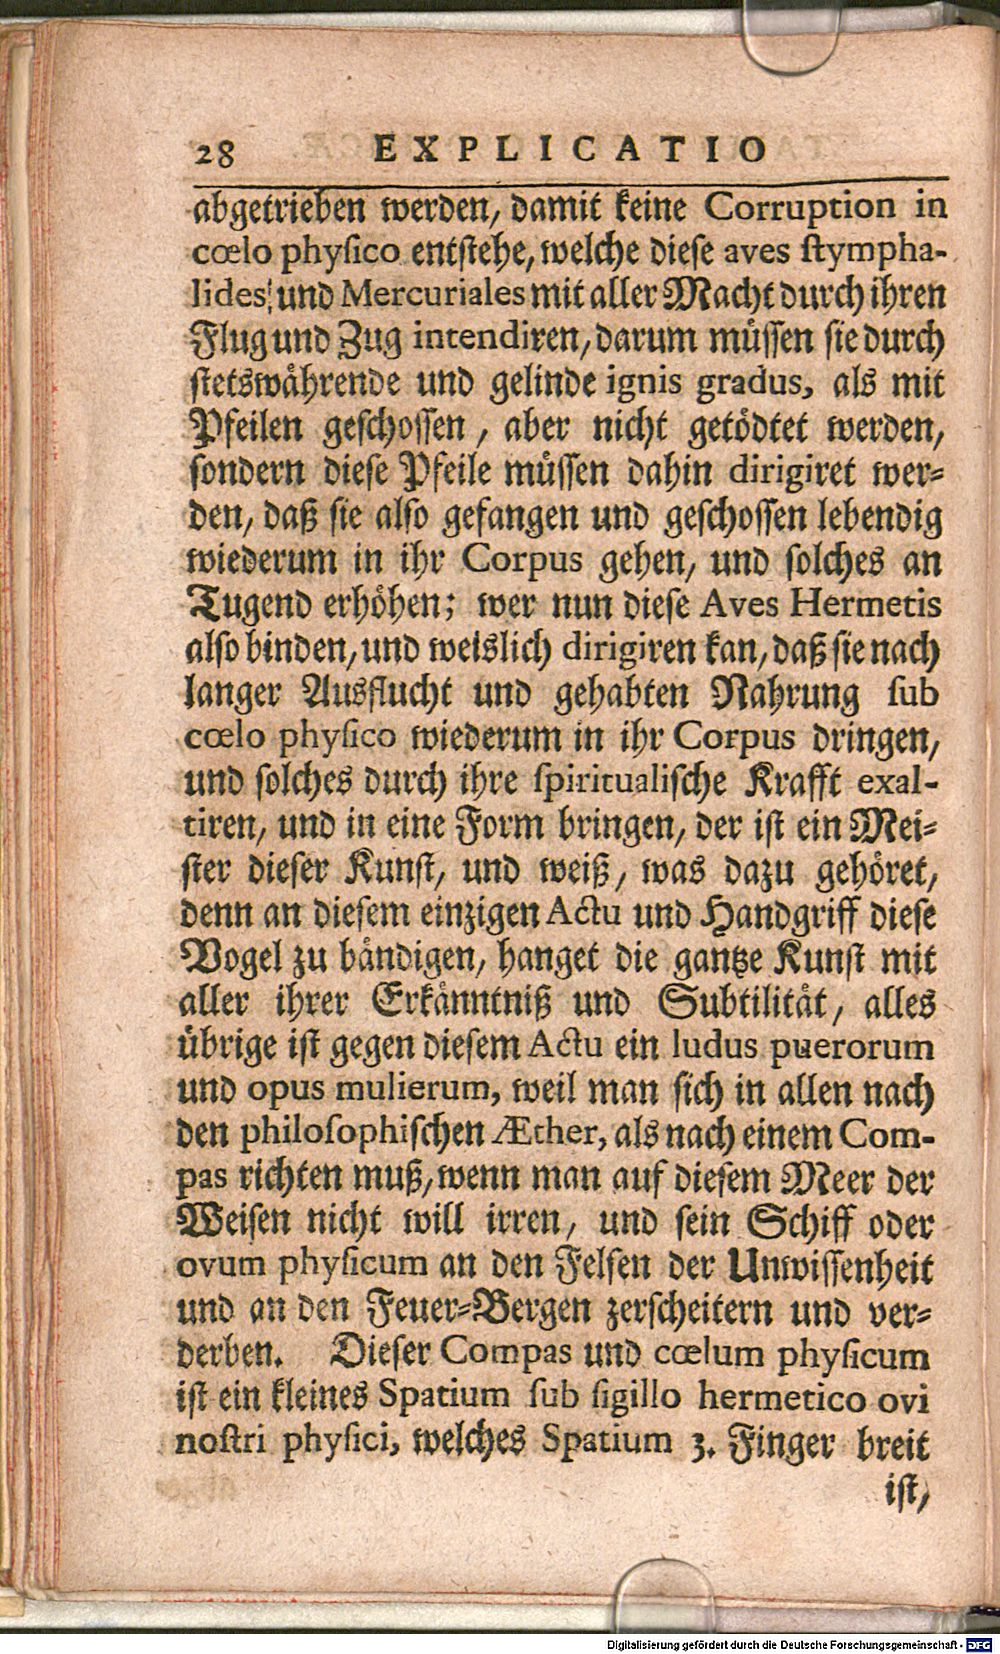 28 EXPLICATIO
abgetrieben werden, damit keine Corruption in
cœlo physico entstehe, welche diese aves stympha-
lides, und Mercuriales mit aller Macht durch ihren
Flug und Zug intendiren, darum müssen sie durch
stetswährende und gelinde ignis gradus, als mit
Pfeilen geschossen, aber nicht getödtet werden,
sondern diese Pfeile müssen dahin dirigiret wer-
den, daß sie also gefangen und geschossen lebendig
wiederum in ihr Corpus gehen, und solches an
Tugend erhöhen; wer nun diese Aves Hermetis
also binden, und weislich dirigiren kan, daß sie nach
langer Ausflucht und gehabten Nahrung sub
cœlo physico wiederum in ihr Corpus dringen,
und solches durch ihre spiritualische Krafft exal-
tiren, und in eine Form bringen, der ist ein Mei-
ster dieser Kunst, und weiß, was dazu gehöret,
denn an diesem einzigen Actu und Handgriff diese
Vogel zu bändigen, hanget die gantze Kunst mit
aller ihrer Erkänntniß und Subtilität, alles
übrige ist gegen diesem Actu ein ludus puerorum
und opus mulierum, weil man sich in allen nach
den philosophischen Æther, als nach einem Com-
pas richten muß, wenn man auf diesem Meer der
Weisen nicht will irren, und sein Schiff oder
ovum physicum an den Felsen der Unwissenheit
und an den Feuer-Bergen zerscheitern und ver-
derben. Dieser Compas und cœlum physicum
ist ein kleines Spatium sub sigillo hermetico ovi
nostri physici, welches Spatium 3. Finger breit
ist,
Digitalisierung gefördert durch die Deutsche Forschungsgemeinschaft - DFG